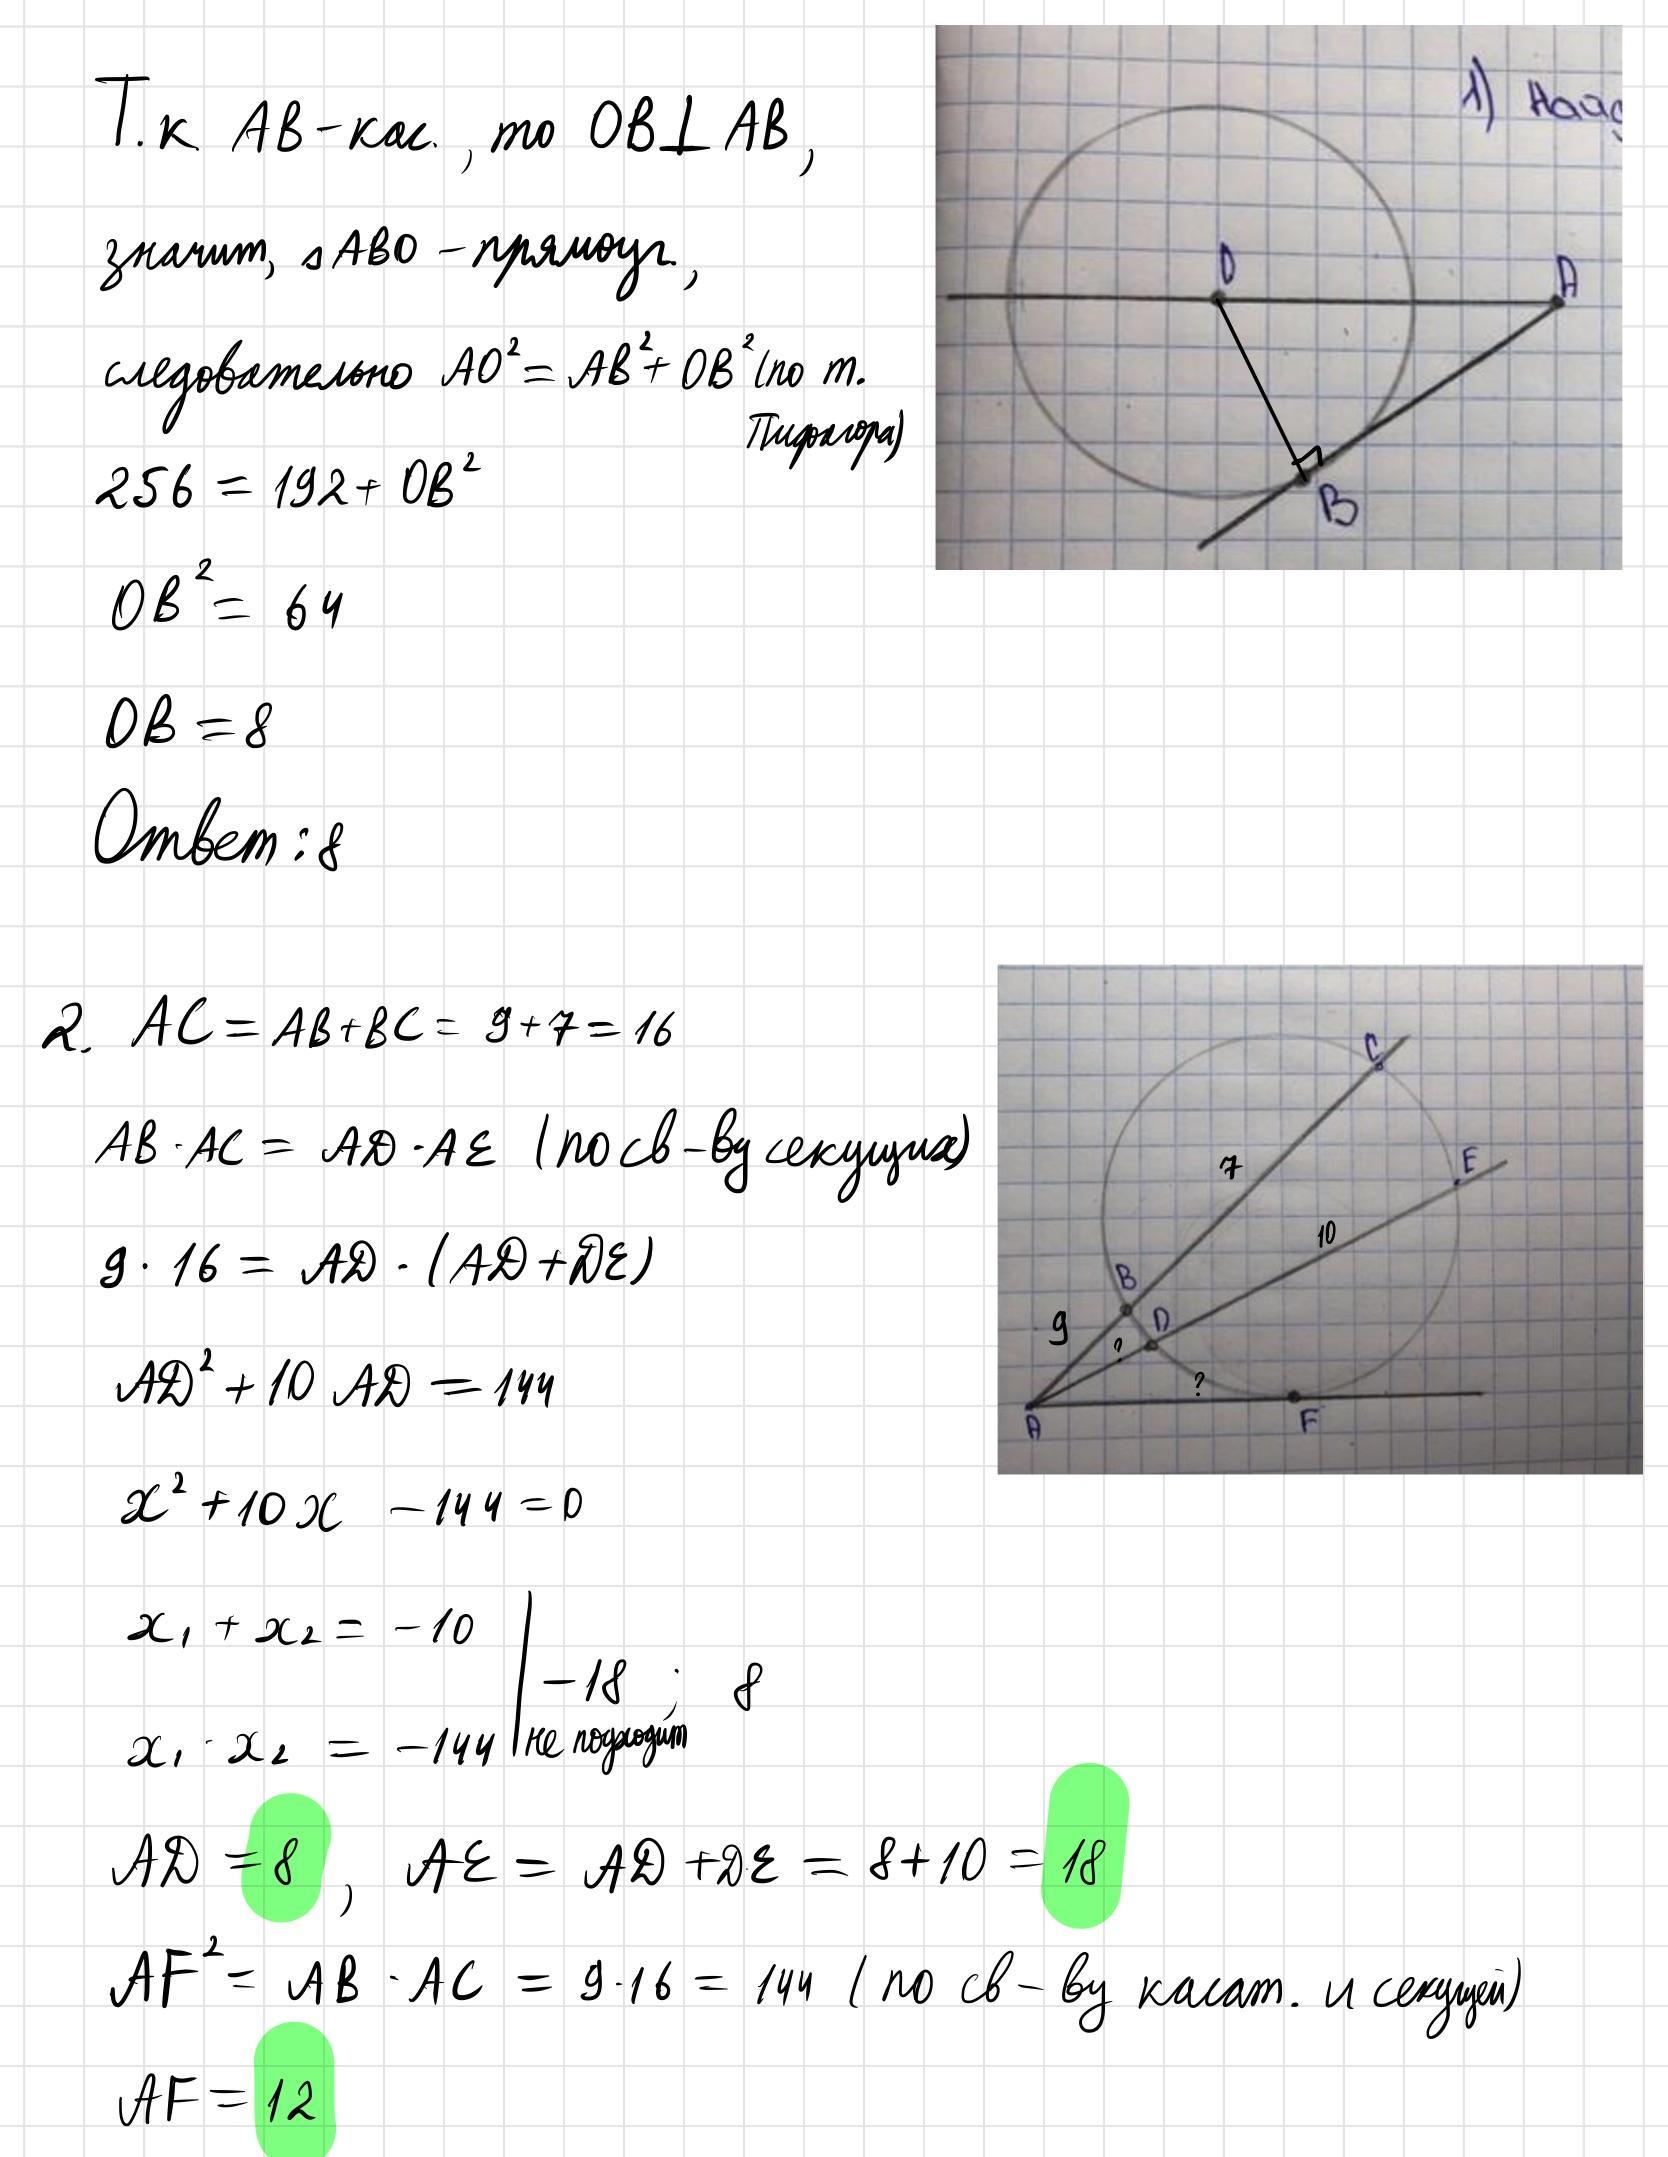 Т.к AB-кас., то OB⊥AB,
значит, △ABO - прямоуг.,
следовательно AO² = AB² + OB² (по т.
Пифагора)
256 = 192 + OB²
OB² = 64
OB = 8
Ответ: 8
O
A
B
2. AC = AB + BC = 9 + 7 = 16
AB · AC = AD · AE (по св-ву секущих)
9 · 16 = AD · (AD + DE)
AD² + 10 AD = 144
x² + 10x - 144 = 0
x₁ + x₂ = -10
-18 ; 8
x₁ · x₂ = -144
не подходит
AD = 8, AE = AD + DE = 8 + 10 = 18
AF² = AB · AC = 9 · 16 = 144 (по св-ву касат. и секущей)
AF = 12
C
7
E
10
B
9
D
?
?
A
F
1)